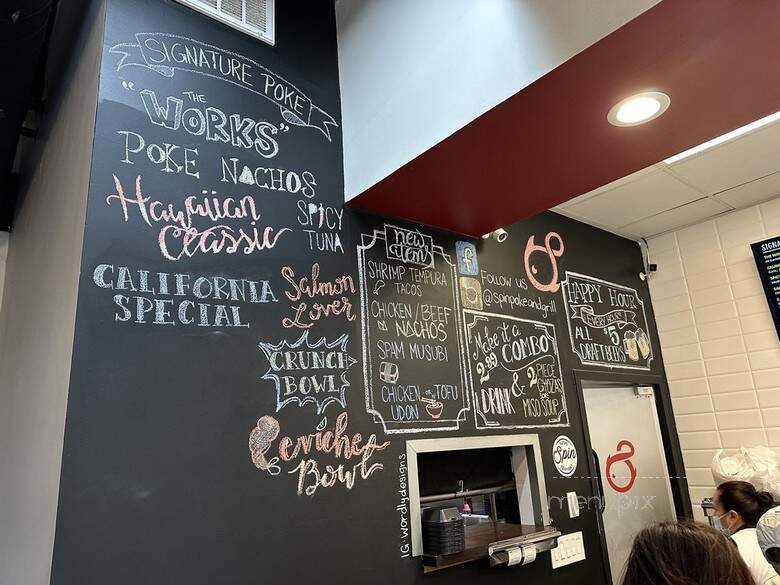 SIGNATURE POKE
"THE
WORKS"
POKE NACHOS
Hawaiian
Classic
SPICY
TUNA
CALIFORNIA
SPECIAL
Salmon
Lover
CRUNCH
BOWL
Ceviche
Bowl
new
item
SHRIMP TEMPURA
TACOS
CHICKEN/BEEF
NACHOS
SPAM MUSUBI
CHICKEN TOFU
UDON
f
FOLLOW US
@spinpokeandgrill
Make it a
2.99 COMBO
DRINK & 2 PIECE
GYOZAS
OR
MISO SOUP
HAPPY HOUR
EVERY HOUR!
ALL $5
DRAFT BEERS
IG: wordlydesigns
Spin
menupix